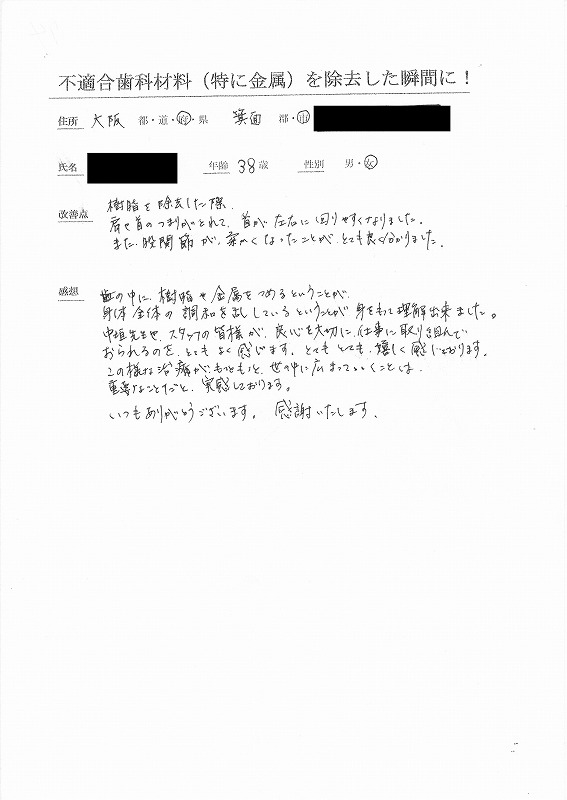 不適合歯科材料（特に金属）を除去した瞬間に！
住所 大阪 都・道・府・県 箕面 郡・市
氏名 年齢 38 歳 性別 男・女
改善点 樹脂を除去した際、
肩や首のつまりがとれて、首が左右に回りやすくなりました。
また、股関節が、柔かくなったことが、とても良く分かりました。
感想 歯の中に、樹脂や金属をつめるということが、
身体全体の調和を乱しているということが身をもって理解出来ました。
中垣先生や、スタッフの皆様が、良心を大切に、仕事に取り組んで
おられるのを、とてもよく感じます。とてもとても、嬉しく感じております。
この様な治療がもっともっと、世の中に広まっていくことは、
重要なことだと、実感しております。
いつもありがとうございます。感謝いたします。